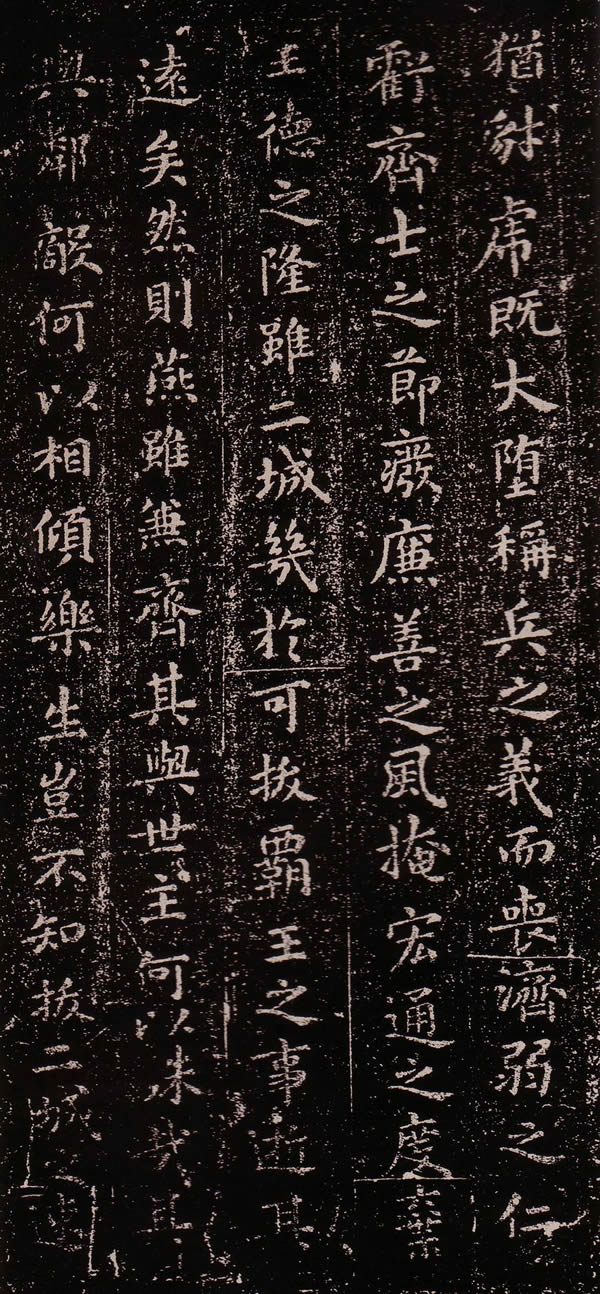 猶豺虎既大堕稱兵之義而喪濟弱之仁
虧齊士之節廢廉善之風掩宏通之度棄
王德之隆雖二城幾於可拔霸王之事逝其
遠矣然則燕雖兼齊其與世主何以殊哉其
與鄰敵何以相傾樂生豈不知拔二城之速